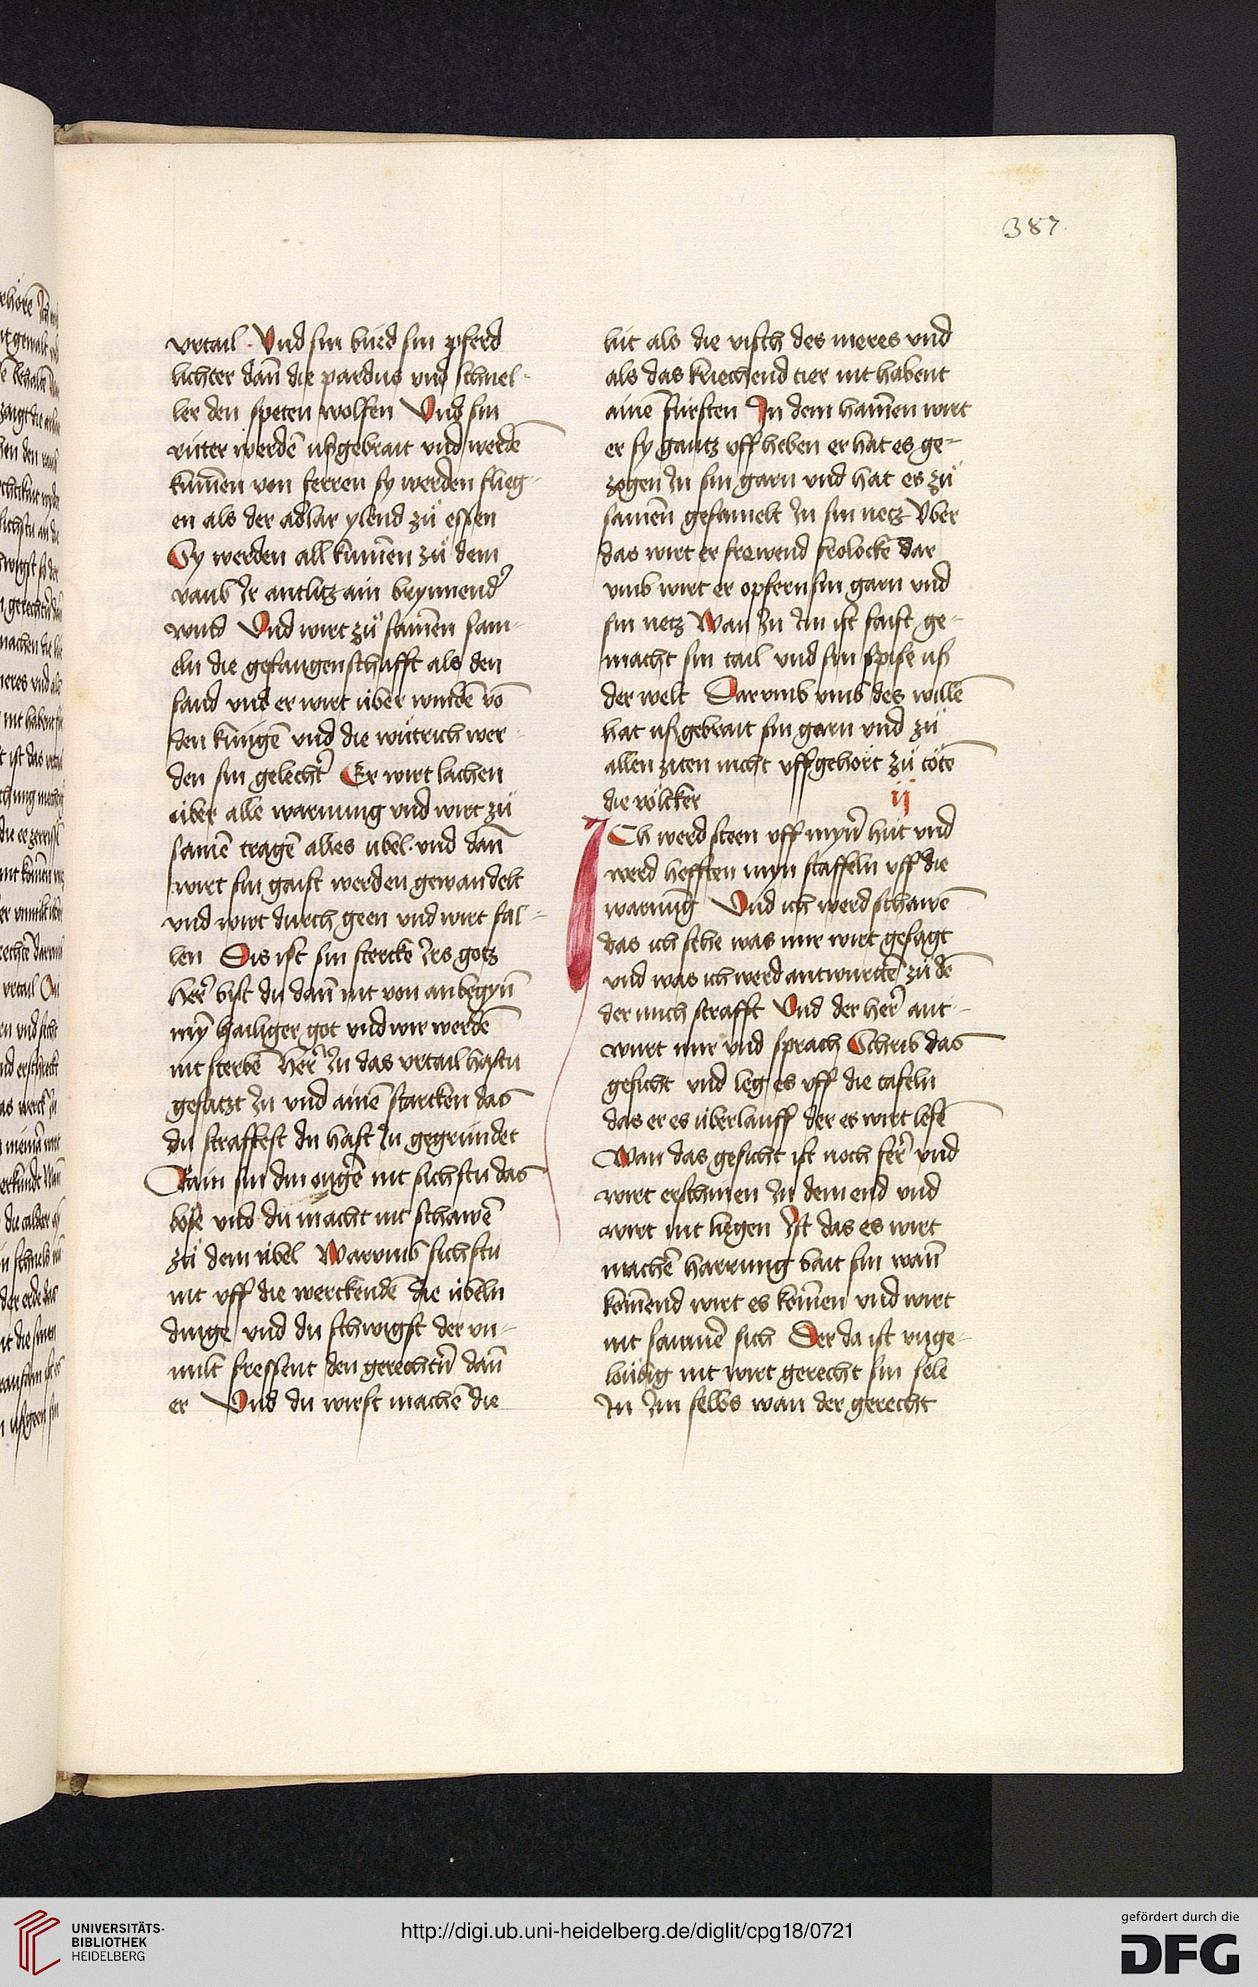 387
vrtail · Vnd sin bürd sin pferd
lichter dañ die pardus vnd schnel-
ler den speten wolfen Vnd sin
ritter werdē ußgebrait vnd werdē
kumēn von ferren sy werden flieg-
en als der adlar ylend zů essen
Sy werden all kumēn zů dem
raub Ir antlitz ain brynnend
wind Vnd wirt zů samēn sam-
eln die gefangenschafft als den
sand vnd er wirt über winden vō
den kungē vnd die wütrich wer-
den sin gelecht Er wirt lachen
über alle warnung vnd wirt zů
samē tragē alles übel · vnd dañ
wirt sin gaist werden gewandelt
vnd wirt durch geen vnd wirt fal-
len Dis ist sin stercke Irs gotz
Her bist du dañ nit von anbegyñ
myn hailiger got vnd wir werdē
nit sterbē Her In das vrtail hastu
gesatzt In vnd ainē starcken das
du straffest du hast In gegründet
Rain sin din ougē nit sichstu das
böse vnd du macht nit schawē
zů dem übel Warumb sichstu
nit uff die werckendē die übeln
dinge vnd du schwigst der vn-
milt fressent den gerechtñ dañ
er Vnd du wirst machē die
lüt als die visch des meres vnd
als das kriechend tier nit habent
ainē fürsten In dem hamēn wirt
er sy gantz uff heben er hat es ge-
zogen In sin garn vnd hat es zů
samēn gesamelt In sin netz Vber
das wirt er frewend frolockē Dar
vmb wirt er opfern sin garn vnd
sin netz Wan In Im ist faist ge-
macht sin tail vnd sin spise uß
der welt Dar vmb vmb des willē
hat ußgebrait sin garn vnd zů
allen ziten nicht uffgehört zů tötē
die völcker ij
ICh werd steen uff myñ hüt vnd
werd hefften myn staffeln uff die
warnūg Vnd ich werd schawē
das ich sehe was mir wirt gesagt
vnd was ich werd antwurttē zů dē
der mich strafft Vnd der her ant-
wurt mir vnd sprach Schrib das
gesicht vnd leg es uff die tafeln
das er es überlauff der es wirt lesē
Wan das gesicht ist noch fer vnd
wirt erschinen In dem end vnd
wirt nit liegen Ist das es wirt
machē harrung bait sin wañ
komēnd wirt es komēn vnd wirt
nit saumē sich Der da ist vnge-
löubig nit wirt gerecht sin sele
In Im selbs wan der gerecht
UNIVERSITÄTS-
BIBLIOTHEK
HEIDELBERG
http://digi.ub.uni-heidelberg.de/diglit/cpg18/0721
gefördert durch die
DFG